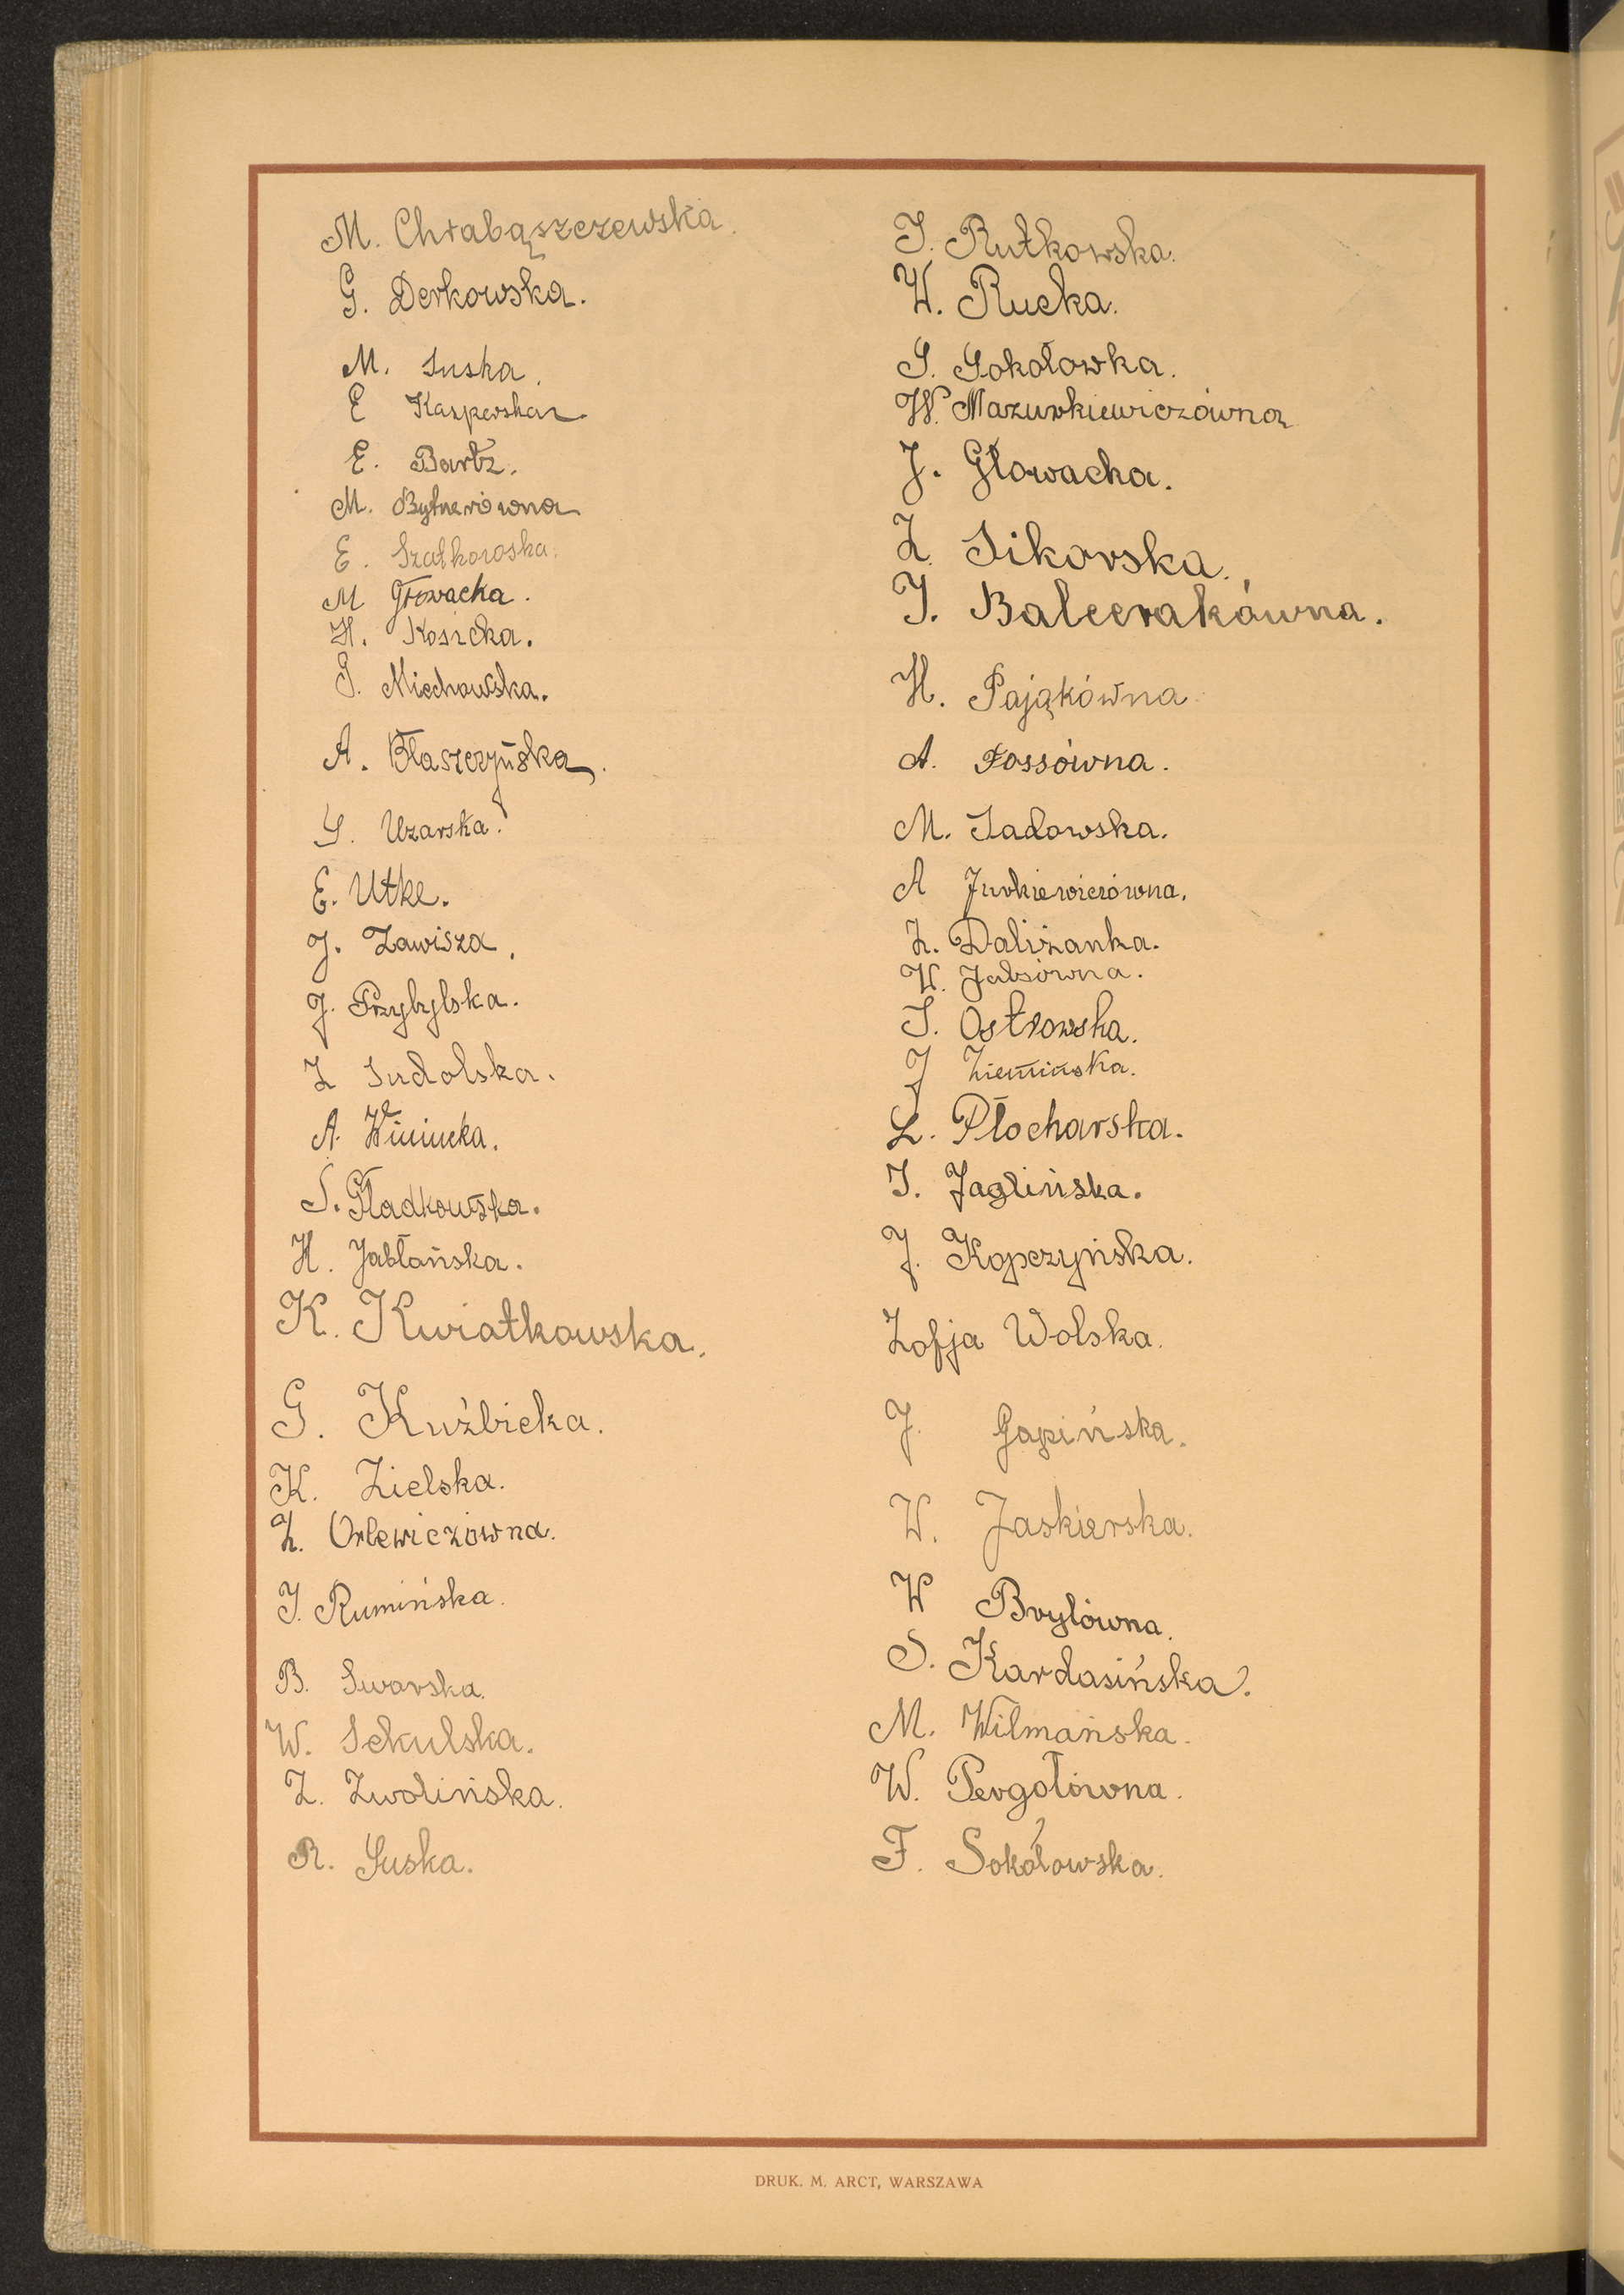 M. Chrabąszczewska.
G. Derkowska.
M. Suska.
E Kasperska.
E. Bartz.
M. Bytnerówna
E. Szatkowska.
M Głowacka.
H. Kosicka.
J. Miechowska.
A. Błaszczyńska.
S. Uzarska.
E. Utke.
J. Zawisza.
J. Przybylska.
Z Sudolska.
A. Winiucka.
S. Gładkowska.
H. Jabłońska.
K. Kwiatkowska.
G. Kuźbicka.
K. Zielska.
Z. Orlewiczówna.
J. Rumińska.
B. Swarska.
W. Sekulska.
Z. Zwolińska.
R. Suska.
J. Rutkowska.
W. Rucka.
S. Sokołowka.
W. Mazurkiewiczówna
J. Głowacka.
Z. Sikorska.
J. Balcerakówna.
H. Pająkówna.
A. Fossówna.
M. Sadowska.
A Jurkiewiczówna.
Z. Daliżanka.
W. Jabsówna.
J. Ostrowska.
J Ziemińska.
L. Płocharska.
J. Jaglińska.
J. Kopczyńska.
Zofja Wolska.
J. Gapińska.
W. Jaskierska.
W Brylówna.
S. Kardasińska.
M. Wilmańska.
W. Pergołówna.
F. Sokółowska.
DRUK. M. ARCT, WARSZAWA